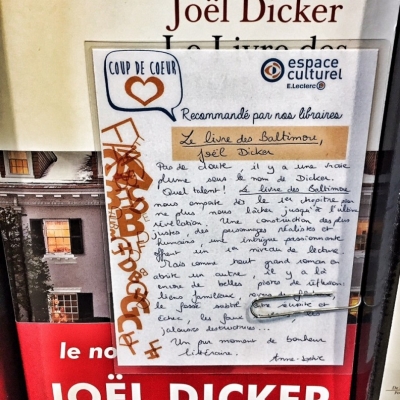 Joël Dicker
Le Livre des
COUP DE COEUR
espace
culturel
E.Leclerc
Recommandé par nos libraires
Le livre des Baltimore,
Joël Dicker
Pas de doute il y a une vraie
plume sous le nom de Dicker.
Quel talent! Le livre des Baltimore
nous emporte dès le 1er chapitre pour
ne plus nous lâcher jusqu'à l'ultime
révélation. Une construction des plus
justes, des personnages réalistes et
humains, une intrigue passionnante
offrent un 1er niveau de lecture.
Mais comme tout grand roman en
abrite un autre, il y a là
encore de belles pistes de réflexion:
liens familiaux,
le passé, entre réussite et
échec, les faux
jalousies destructrices...
Un pur moment de bonheur
littéraire.
le no
JOËL DICKER